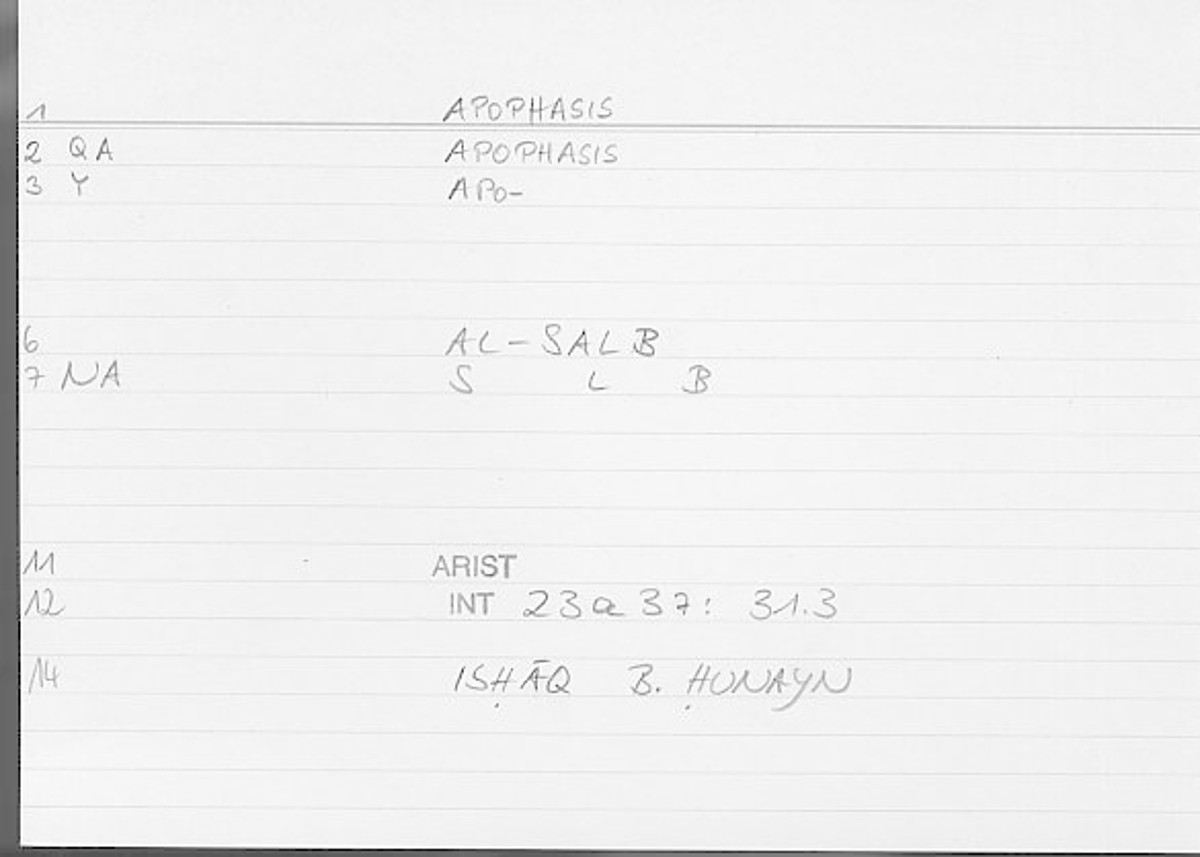 1 APOPHASIS
2 QA APOPHASIS
3 Y APO-
6 AL-SALB
7 NA S L B
11 ARIST
12 INT 23a37: 31.3
14 ISḤĀQ B. ḤUNAYN